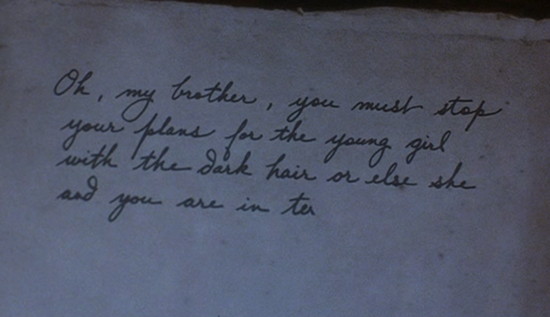 Oh, my brother, you must stop
your plans for the young girl
with the dark hair or else she
and you are in ter